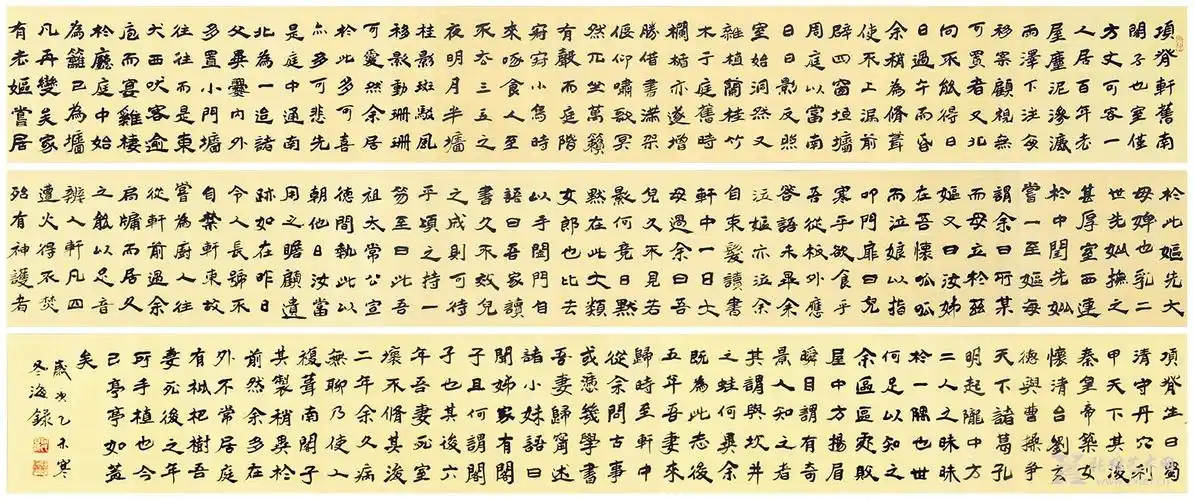 項脊軒舊南
閤子也室僅
方丈可容一
人居百年老
屋塵泥滲漉
雨澤下注每
移案顧視無
可置者又北
向不能得日
日過午而昏
余稍為修葺
使不上漏前
辟四窗垣墻
周庭以當南
日日影反照
室始洞然又
雜植蘭桂竹
木于庭舊時
欄楯亦遂增
勝借書滿架
偃仰嘯歌冥
然兀坐萬籟
有聲而庭階
寂寂小鳥時
來啄食人至
不去三五之
夜明月半墻
桂影斑駁風
移影動珊珊
可愛然余居
於此多可喜
亦多可悲先
是庭中通南
北為一迨諸
父異爨內外
多置小門墻
往往而是東
犬西吠客逾
庖而宴雞棲
於廳庭中始
為籬已為墻
凡再變矣家
有老嫗嘗居
於此嫗先大
母婢也乳二
世先妣撫之
甚厚室西連
於中閨先妣
嘗一至嫗每
謂余曰所某
而母立於茲
嫗又曰汝姊
在吾懷呱呱
而泣娘以指
叩門扉曰兒
寒乎欲食乎
吾從板外應
答語未畢余
泣嫗亦泣余
自束髮讀書
軒中一日大
母過余曰吾
兒久不見若
影何竟日默
默在此大類
女郎也比去
以手闔門自
語曰吾家讀
書久不效兒
之成則可待
乎頃之持一
笏至曰此吾
祖太常公宣
德間執此以
朝他日汝當
用之瞻顧遺
跡如在昨日
令人長號不
自禁軒東故
嘗為廚人往
從軒前過余
扃牖而居久
之能以足音
辨人軒凡四
遭火得不焚
殆有神護者
項脊生曰蜀
清守丹穴利
甲天下其後
秦皇帝築女
懷清台劉玄
德與曹操爭
天下諸葛孔
明起隴中方
二人之昧昧
於一隅也世
何足以知之
余區區處敗
屋中方揚眉
瞬目謂有奇
景人知之者
其謂與坎井
之蛙何異余
既為此志後
五年吾妻來
歸時至軒中
從余問古事
或憑幾學書
吾妻歸寧述
諸小妹語曰
聞姊家有閤
子且何謂閤
子也其後六
年吾妻死室
壞不修其後
二年余久病
無聊乃使人
復葺南閤子
其製稍異於
前然余多在
外不常居庭
有枇杷樹吾
妻死後之年
所手植也今
已亭亭如蓋
矣
歲次乙未寒
冬海錄